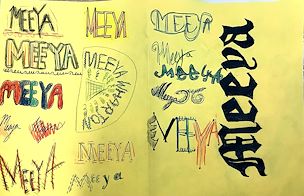 MEEYA
MEEYA
MEEYA
MEEYA WHARTON
MEEYA
Meeya
MEEYA
MEEYA
Meeya
MEEYA
Meeya
MEEYA
Meeya
MEEYA
Meeya